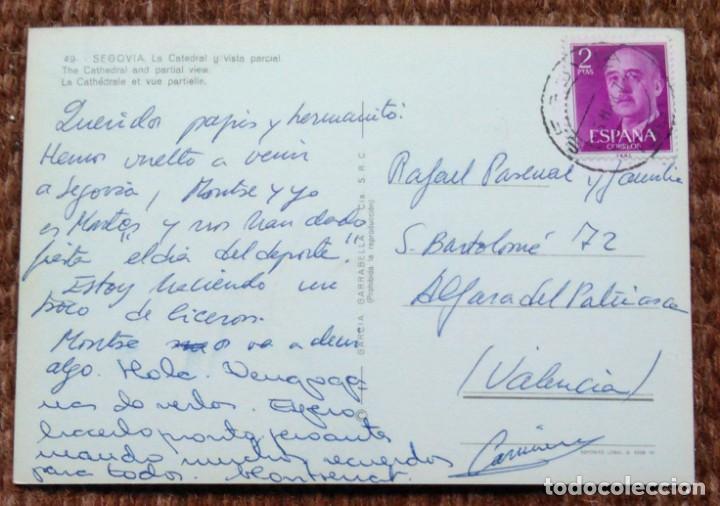 49 - SEGOVIA. La Catedral y vista parcial
The Cathedral and partial view
La Cathédrale et vue partielle.
Queridos papis y hermanito:
Hemos vuelto a venir
a Segovia, Montse y yo
es Martes y nos han dado
fiesta "el dia del deporte".
Estoy haciendo un
poco de
Montse os va a decir
algo. Hola. Vengo ga
nas de verlos. Espero
hacerlo pronto, pero ante
mando muchos recuerdos
para todos. Montserrat.
GARCIA GARRABELLA Y Cía. S.R.C.
(Prohibida la reproducción)
2
PTAS
ESPAÑA
CORREOS
Rafael Pascual y familia
S. Bartolomé 72
Alfara del Patriarca
(Valencia)
Carmina
todocoleccion
todocoleccion.net